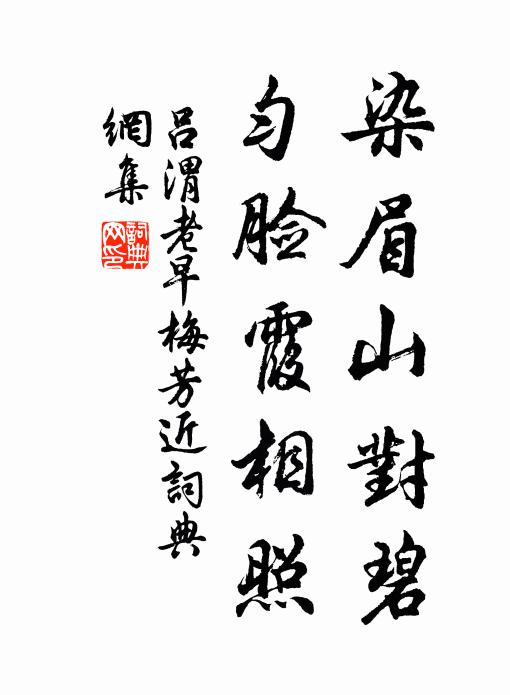 染眉山對碧
匀脸霞相照
吕渭老早梅芳近詞典
網集
詞典
网印